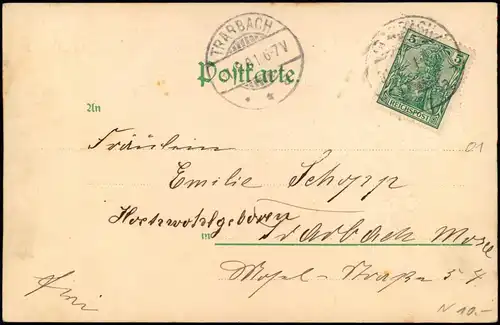 TRARBACH
1 6-7V
5 5
REICHSPOST
Postkarte.
An
Fräulein
01
Emilie Schopp
Hochwohlgeboren
in Trarbach Mosel
Mosel-Straße 54
N 10.-